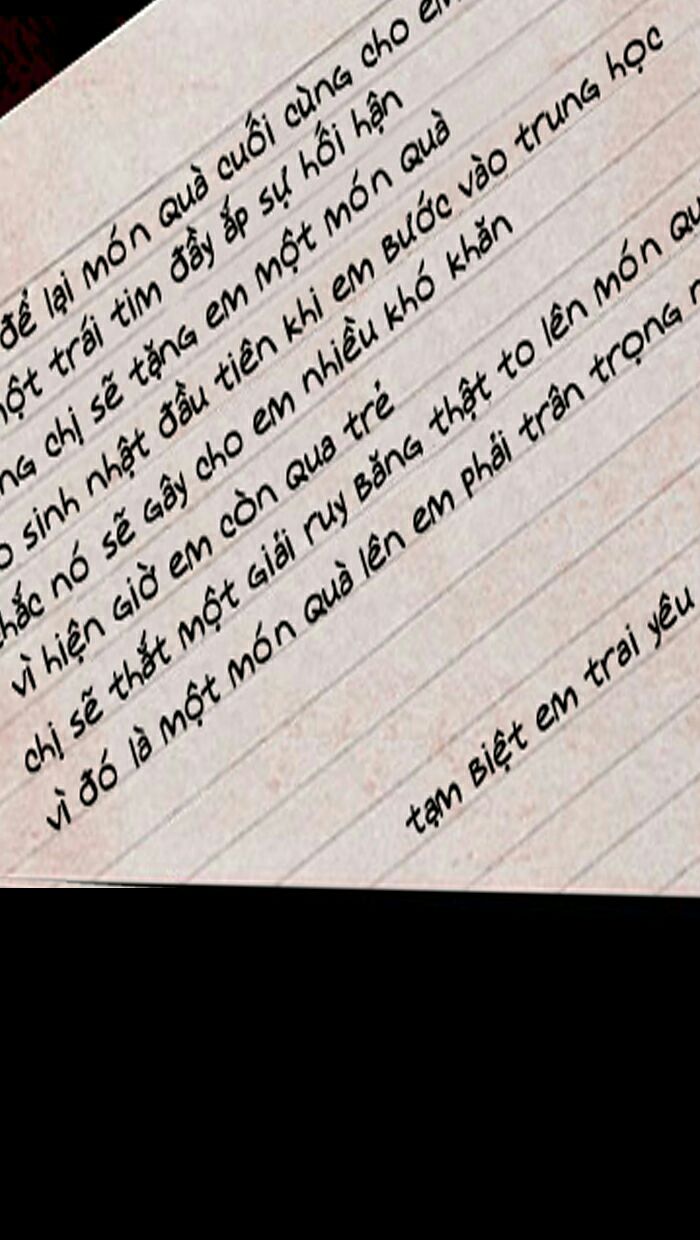 để lại món quà cuối cùng cho em
một trái tim đầy ắp sự hối hận
chị sẽ tặng em một món quà
sinh nhật đầu tiên khi em bước vào trung học
chắc nó sẽ gây cho em nhiều khó khăn
vì hiện giờ em còn qua trẻ
chị sẽ thắt một giải ruy băng thật to lên món
vì đó là một món quà lên em phải trân trọng
tạm biệt em trai yêu